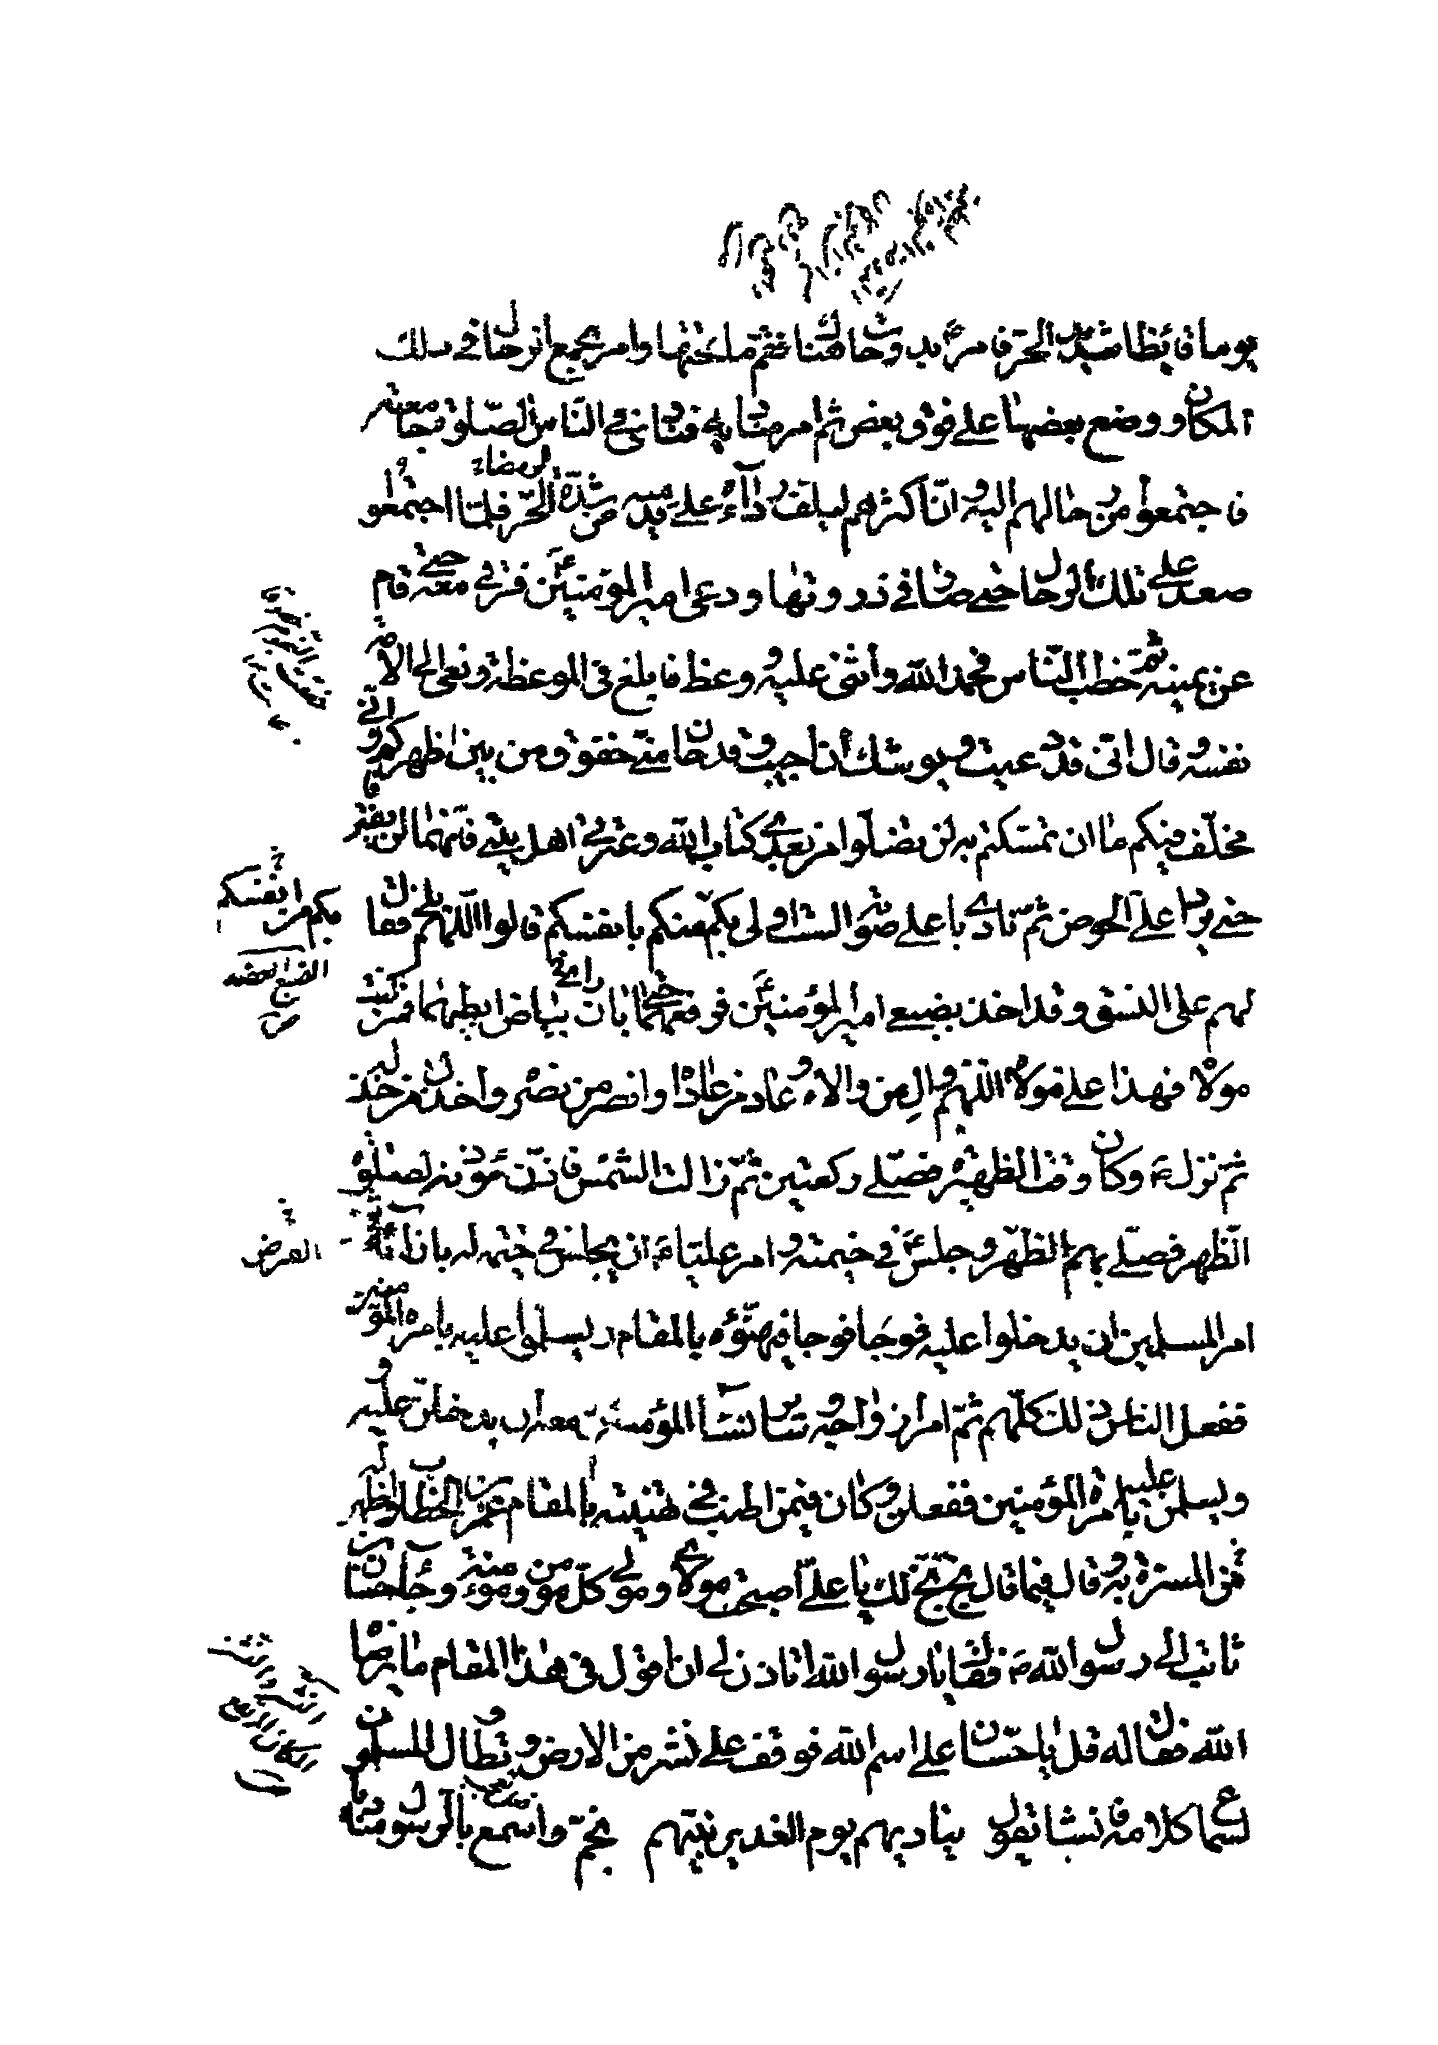 يوما قائظا شديد الحر فامر ع بدوحات هنا فقم ما تحتها وامر بجمع الرحال في ذلك
المكان ووضع بعضها على فوق بعض ثم امر مناديه فنادى في الناس الصلوة جامعة
فاجتمعوا من رحالهم اليه وان اكثرهم ليلف رداءه على قدميه من شدة الحر فلما اجتمعوا
الرمضاء
صعد على تلك الرحال حتى صار في ذروتها ودعى امير المؤمنين ع فرقى معه حتى قام
عن يمينه ثم خطب الناس فحمد الله واثنى عليه ووعظ فابلغ في الموعظة ونعى الى الامة
نفسه وقال انى قد دعيت ويوشك ان اجيب وقد حان منى خفوق من بين اظهركم وانى
مخلف فيكم ما ان تمسكتم به لن تضلوا من بعدى كتاب الله وعترتى اهل بيتى فانهما لن يفترقا
حتى يردا على الحوض ثم نادى باعلى صوته الست اولى بكم منكم بانفسكم قالوا اللهم بلى فقال
بكم من انفسكم
لهم على النسق وقد اخذ بضبعى امير المؤمنين ع فرفعهما حتى بان بياض ابطيهما فمن كنت
مولاه فهذا على مولاه اللهم وال من والاه وعاد من عاداه وانصر من نصره واخذل من خذله
ثم نزل ع وكان وقت الظهيرة فصلى ركعتين ثم زالت الشمس فاذن مؤذنه لصلوة
الظهر فصلى بهم الظهر وجلس ع في خيمته وامر عليا ع ان يجلس في خيمة له بازائه ثم
الفرض
امر المسلمين ان يدخلوا عليه فوجا فوجا فيهنئوه بالمقام ويسلموا عليه بامرة المؤمنين
ففعل الناس ذلك كلهم ثم امر ازواجه وسائر نساء المؤمنين معه ان يدخلن عليه
ويسلمن عليه بامرة المؤمنين ففعلن وكان فيمن اطنب في تهنيته بالمقام عمر بن الخطاب واظهر له
من المسرة به وقال فيما قال بخ بخ لك يا على اصبحت مولاى ومولى كل مؤمن ومؤمنة وجاء حسان بن
ثابت الى رسول الله ص فقال يا رسول الله اتاذن لى ان اقول في هذا المقام ما يرضاه
الله فقال له قل يا حسان على اسم الله فوقف على نشز من الارض وتطاول المسلمون
لسماع كلامه فانشا يقول يناديهم يوم الغدير نبيهم بخم واسمع بالرسول مناديا